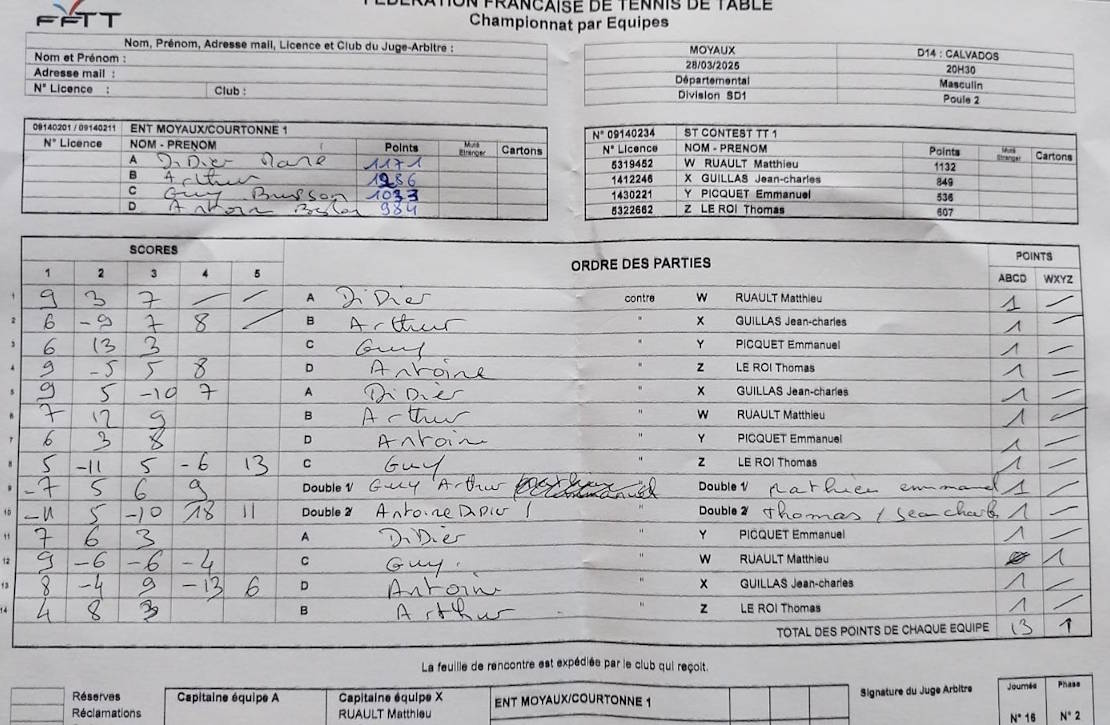 FFTT
FÉDÉRATION FRANÇAISE DE TENNIS DE TABLE
Championnat par Equipes
Nom, Prénom, Adresse mail, Licence et Club du Juge-Arbitre :
Nom et Prénom :
Adresse mail :
N° Licence : Club :
MOYAUX D14 : CALVADOS
28/03/2025 20H30
Départemental Masculin
Division SD1 Poule 2
09140201 / 09140211 ENT MOYAUX/COURTONNE 1
N° Licence NOM - PRENOM Points Muté Etranger Cartons
A Didier 1171
B Arthur 1286
C Guy Buisson 1033
D Antoin 984
N° 09140234 ST CONTEST TT 1
N° Licence NOM - PRENOM Points Muté Etranger Cartons
5319452 W RUAULT Matthieu 1132
1412246 X GUILLAS Jean-charles 849
1430221 Y PICQUET Emmanuel 536
5322662 Z LE ROI Thomas 607
SCORES ORDRE DES PARTIES POINTS
1 2 3 4 5 ABCD WXYZ
1 9 3 7 — — A Didier contre W RUAULT Matthieu 1 —
2 6 -9 7 8 — B Arthur " X GUILLAS Jean-charles 1 —
3 6 13 3 C Guy " Y PICQUET Emmanuel 1 —
4 9 -5 5 8 D Antoine " Z LE ROI Thomas 1 —
5 9 5 -10 7 A Didier " X GUILLAS Jean-charles 1 —
6 7 12 9 B Arthur " W RUAULT Matthieu 1 —
7 6 3 8 D Antoin " Y PICQUET Emmanuel 1 —
8 5 -11 5 -6 13 C Guy " Z LE ROI Thomas 1 —
9 -7 5 6 9 Double 1/ Guy Arthur " Double 1/ Mathieu emmanuel 1 —
10 -11 5 -10 18 11 Double 2/ Antoine Didier / " Double 2/ Thomas / Jean charles 1 —
11 7 6 3 A Didier " Y PICQUET Emmanuel 1 —
12 9 -6 -6 -4 C Guy. " W RUAULT Matthieu 1
13 8 -4 9 -13 6 D Antoin " X GUILLAS Jean-charles 1 —
14 4 8 3 B Arthur " Z LE ROI Thomas 1 —
TOTAL DES POINTS DE CHAQUE EQUIPE 13 1
La feuille de rencontre est expédiée par le club qui reçoit.
Réserves Capitaine équipe A Capitaine équipe X ENT MOYAUX/COURTONNE 1 Signature du Juge Arbitre Journée Phase
Réclamations RUAULT Matthieu N° 16 N° 2